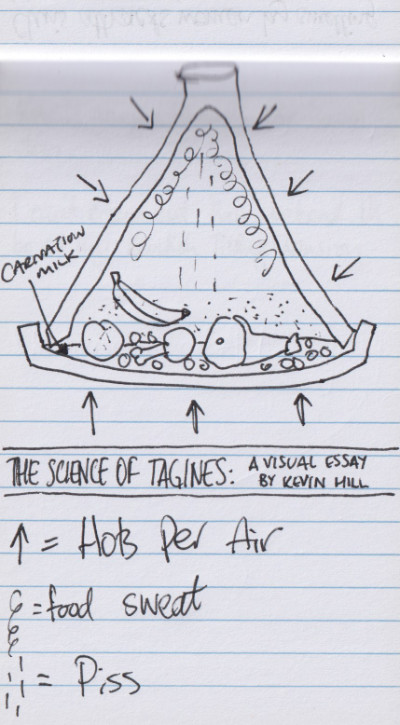 CARNATION
MILK
THE SCIENCE OF TAGINES: A VISUAL ESSAY
BY KEVIN HILL
↑ = Per Air
= food sweat
= Piss